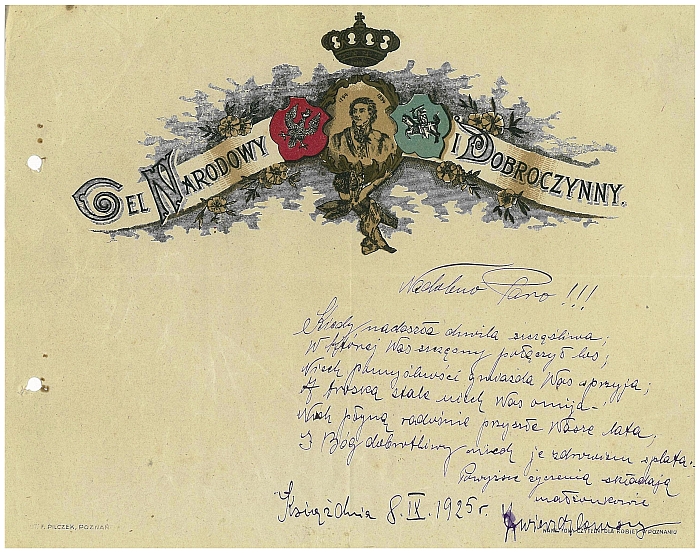 CEL NARODOWY I DOBROCZYNNY.
Nadobno Paro!!!
Kiedy nadeszła chwila szczęśliwa;
W której Was szczęsny połączył los;
Niech pomyślności gwiazda Was sprzyja;
A troska stale niech Was omija -
Niech płyną radośnie przyszłe Wasze lata,
I Bóg dobrotliwy niech je zdrowiem splata.
Powyższe życzenia składają
małżonkowie
Książ dnia 8. IX. 1925 r.
F. PILCZEK, POZNAŃ
NAKŁ. TOW. CZYTELNI DLA KOBIET W POZNANIU